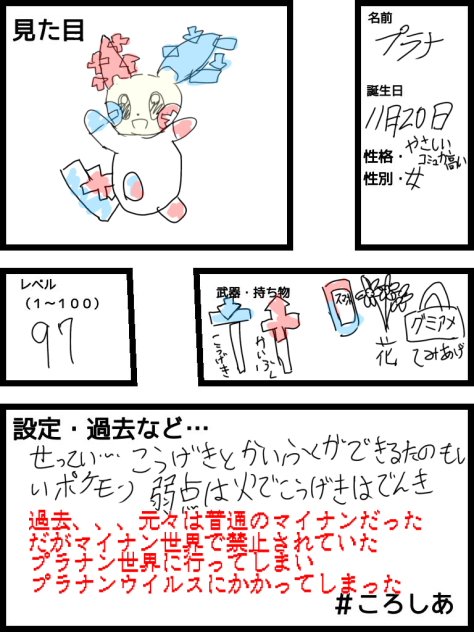 見た目
名前
プラナ
誕生日
11月20日
性格・やさしい
コミュ力高い
性別・女
レベル
(1〜100)
97
武器・持ち物
こうげき
かいふく
スマホ
花
グミアメ
てみあげ
設定・過去など…
せってい… こうげきとかいふくができるたのもし
いポケモン 弱点は火でこうげきはでんき
過去、、、元々は普通のマイナンだった
だがマイナン世界で禁止されていた
プラナン世界に行ってしまい
プラナンウイルスにかかってしまった
#ころしあ